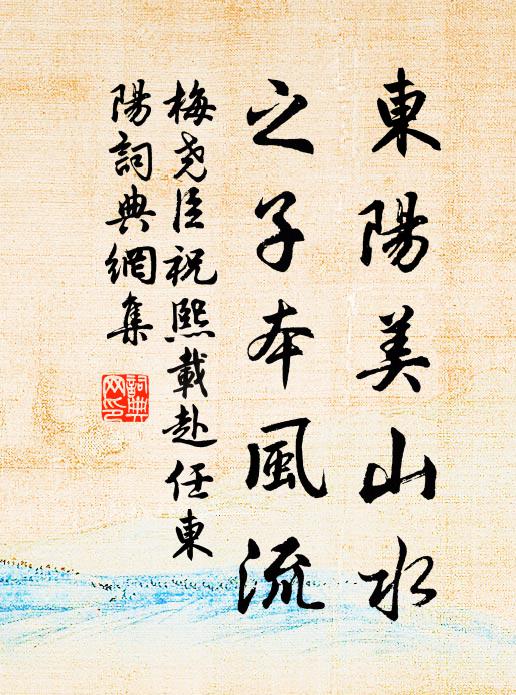 東陽美山水
之子本風流
梅堯臣祝熙載赴任東
陽詞典網集
詞典
网印